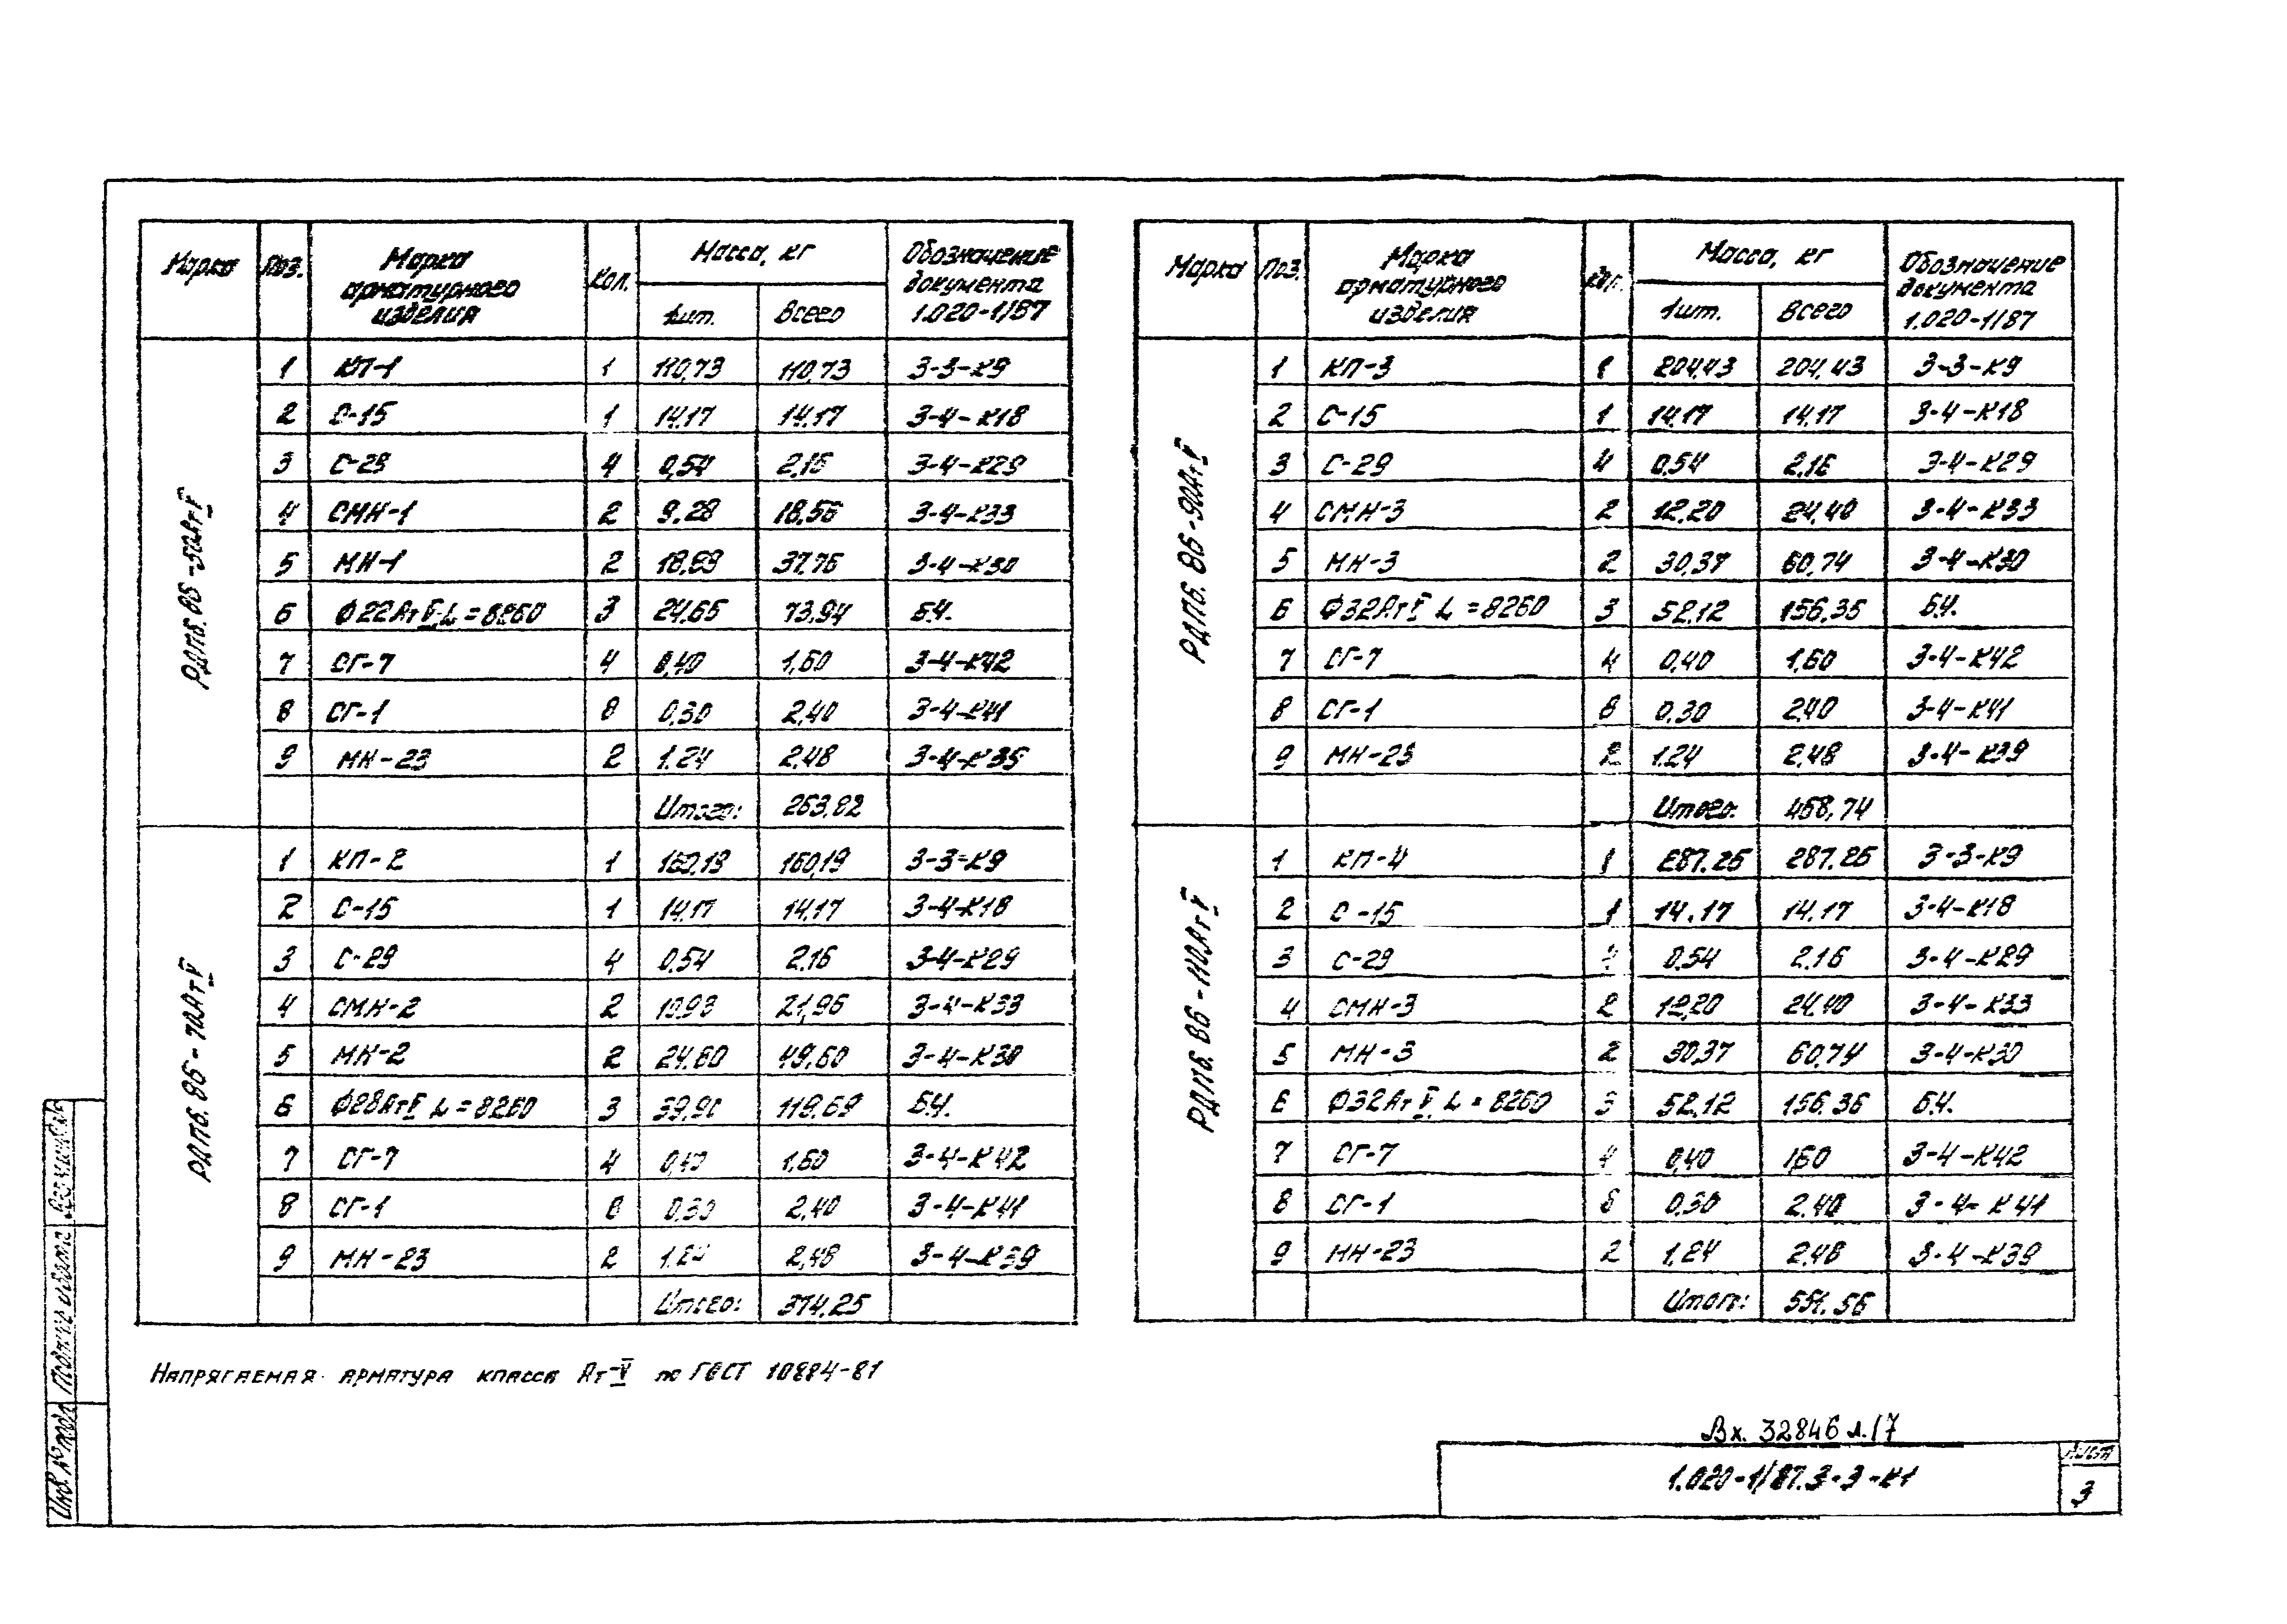 Марка Поз. Марка арматурного изделия Кол. Масса, кг Обозначение документа 1.020-1/87
1шт. Всего
РДП6.86-50АтV
1 КП-1 1 110,73 110,73 3-3-К9
2 С-15 1 14,17 14,17 3-4-К18
3 С-29 4 0,54 2,16 3-4-К29
4 СМН-1 2 9,28 18,56 3-4-К33
5 МН-1 2 18,88 37,76 3-4-К30
6 Ф22АтV L=8260 3 24,65 73,94 Б.Ч.
7 СГ-7 4 0,40 1,60 3-4-К42
8 СГ-1 8 0,30 2,40 3-4-К41
9 МН-23 2 1,24 2,48 3-4-К39
Итого: 263,82
РДП6.86-70АтV
1 КП-2 1 160,19 160,19 3-3-К9
2 С-15 1 14,17 14,17 3-4-К18
3 С-29 4 0,54 2,16 3-4-К29
4 СМН-2 2 10,98 21,96 3-4-К33
5 МН-2 2 24,80 49,60 3-4-К30
6 Ф28АтV L=8260 3 39,90 119,69 Б.Ч.
7 СГ-7 4 0,40 1,60 3-4-К42
8 СГ-1 8 0,30 2,40 3-4-К41
9 МН-23 2 1,24 2,48 3-4-К39
Итого: 374,25
Марка Поз. Марка арматурного изделия Кол. Масса, кг Обозначение документа 1.020-1/87
1шт. Всего
РДП6.86-90АтV
1 КП-3 1 204,43 204,43 3-3-К9
2 С-15 1 14,17 14,17 3-4-К18
3 С-29 4 0,54 2,16 3-4-К29
4 СМН-3 2 12,20 24,40 3-4-К33
5 МН-3 2 30,37 60,74 3-4-К30
6 Ф32АтV L=8260 3 52,12 156,36 Б.Ч.
7 СГ-7 4 0,40 1,60 3-4-К42
8 СГ-1 8 0,30 2,40 3-4-К41
9 МН-23 2 1,24 2,48 3-4-К39
Итого: 468,74
РДП6.86-110АтV
1 КП-4 1 287,25 287,25 3-3-К9
2 С-15 1 14,17 14,17 3-4-К18
3 С-29 4 0,54 2,16 3-4-К29
4 СМН-3 2 12,20 24,40 3-4-К33
5 МН-3 2 30,37 60,74 3-4-К30
6 Ф32АтV L=8260 3 52,12 156,36 Б.Ч.
7 СГ-7 4 0,40 1,60 3-4-К42
8 СГ-1 8 0,30 2,40 3-4-К41
9 МН-23 2 1,24 2,48 3-4-К39
Итого: 551,56
Напрягаемая арматура класса Ат-V по ГОСТ 10884-81
Вх. 32846 л.17
1.020-1/87.3-3-К1
Лист
3
Инв.№подл Подпись и дата Взам.инв.№